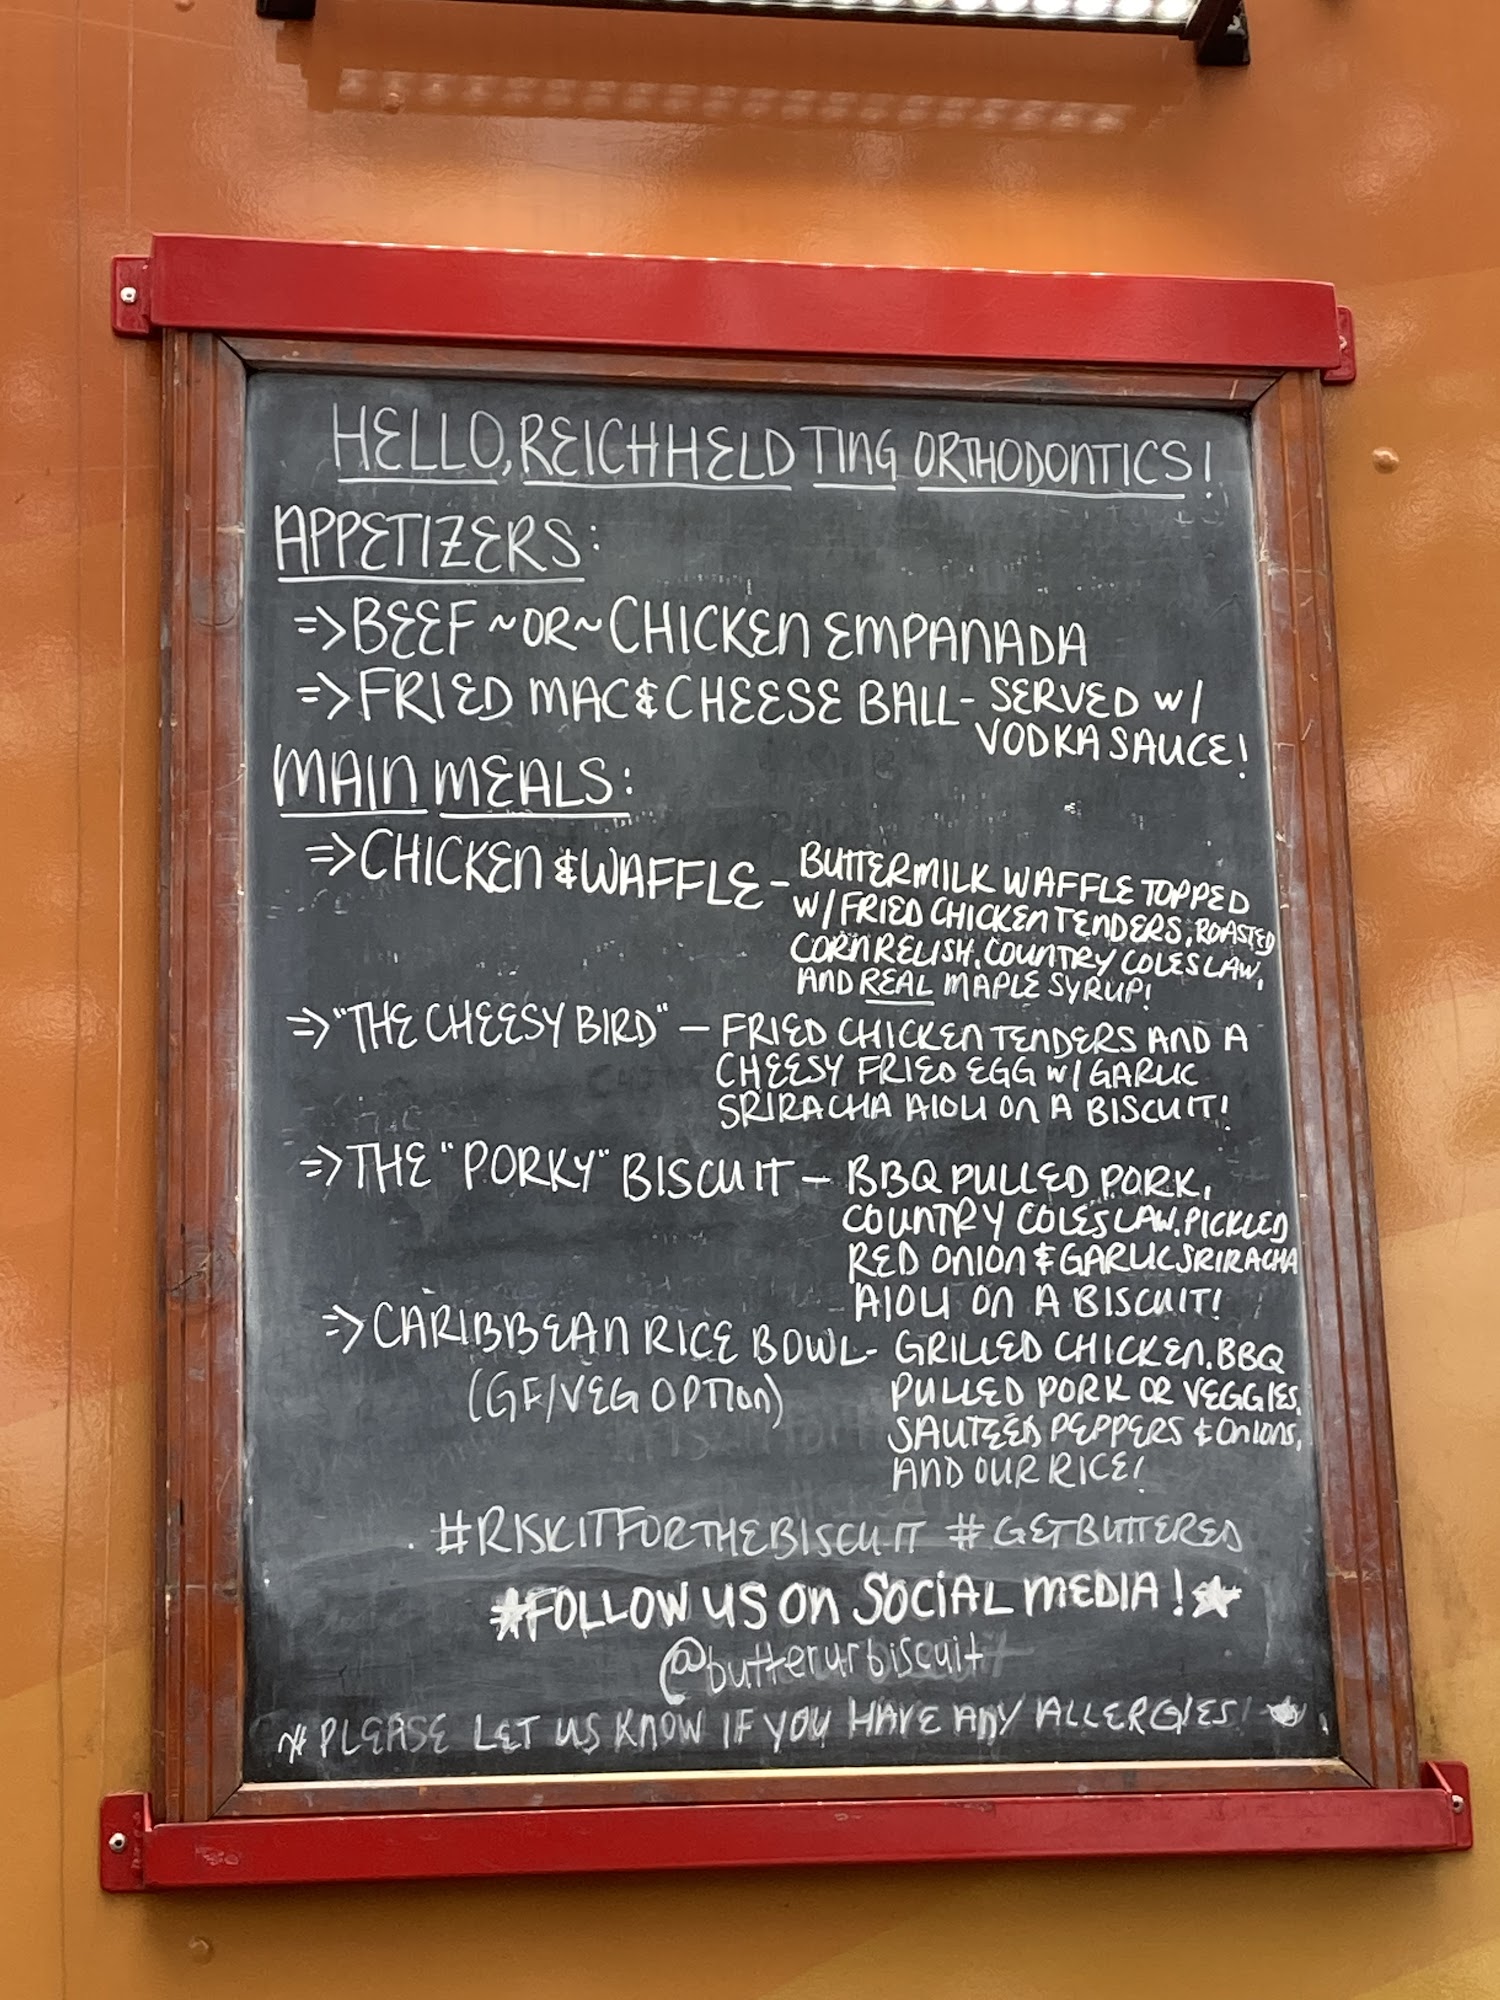 HELLO, REICHHELD TING ORTHODONTICS!
APPETIZERS:
=> BEEF ~OR~ CHICKEN EMPANADA
=> FRIED MAC & CHEESE BALL - SERVED W/
VODKA SAUCE!
MAIN MEALS:
=> CHICKEN & WAFFLE - BUTTERMILK WAFFLE TOPPED
W/ FRIED CHICKEN TENDERS, ROASTED
CORN RELISH, COUNTRY COLESLAW,
AND REAL MAPLE SYRUP!
=> "THE CHEESY BIRD" - FRIED CHICKEN TENDERS AND A
CHEESY FRIED EGG W/ GARLIC
SRIRACHA AIOLI ON A BISCUIT!
=> THE "PORKY" BISCUIT - BBQ PULLED PORK,
COUNTRY COLESLAW, PICKLED
RED ONION & GARLIC SRIRACHA
AIOLI ON A BISCUIT!
=> CARIBBEAN RICE BOWL - GRILLED CHICKEN, BBQ
(GF/VEG OPTION) PULLED PORK OR VEGGIES,
SAUTEED PEPPERS & ONIONS,
AND OUR RICE!
#RISKITFORTHEBISCUIT #GETBUTTERED
*FOLLOW US ON SOCIAL MEDIA!*
@butterurbiscuit
* PLEASE LET US KNOW IF YOU HAVE ANY ALLERGIES! *